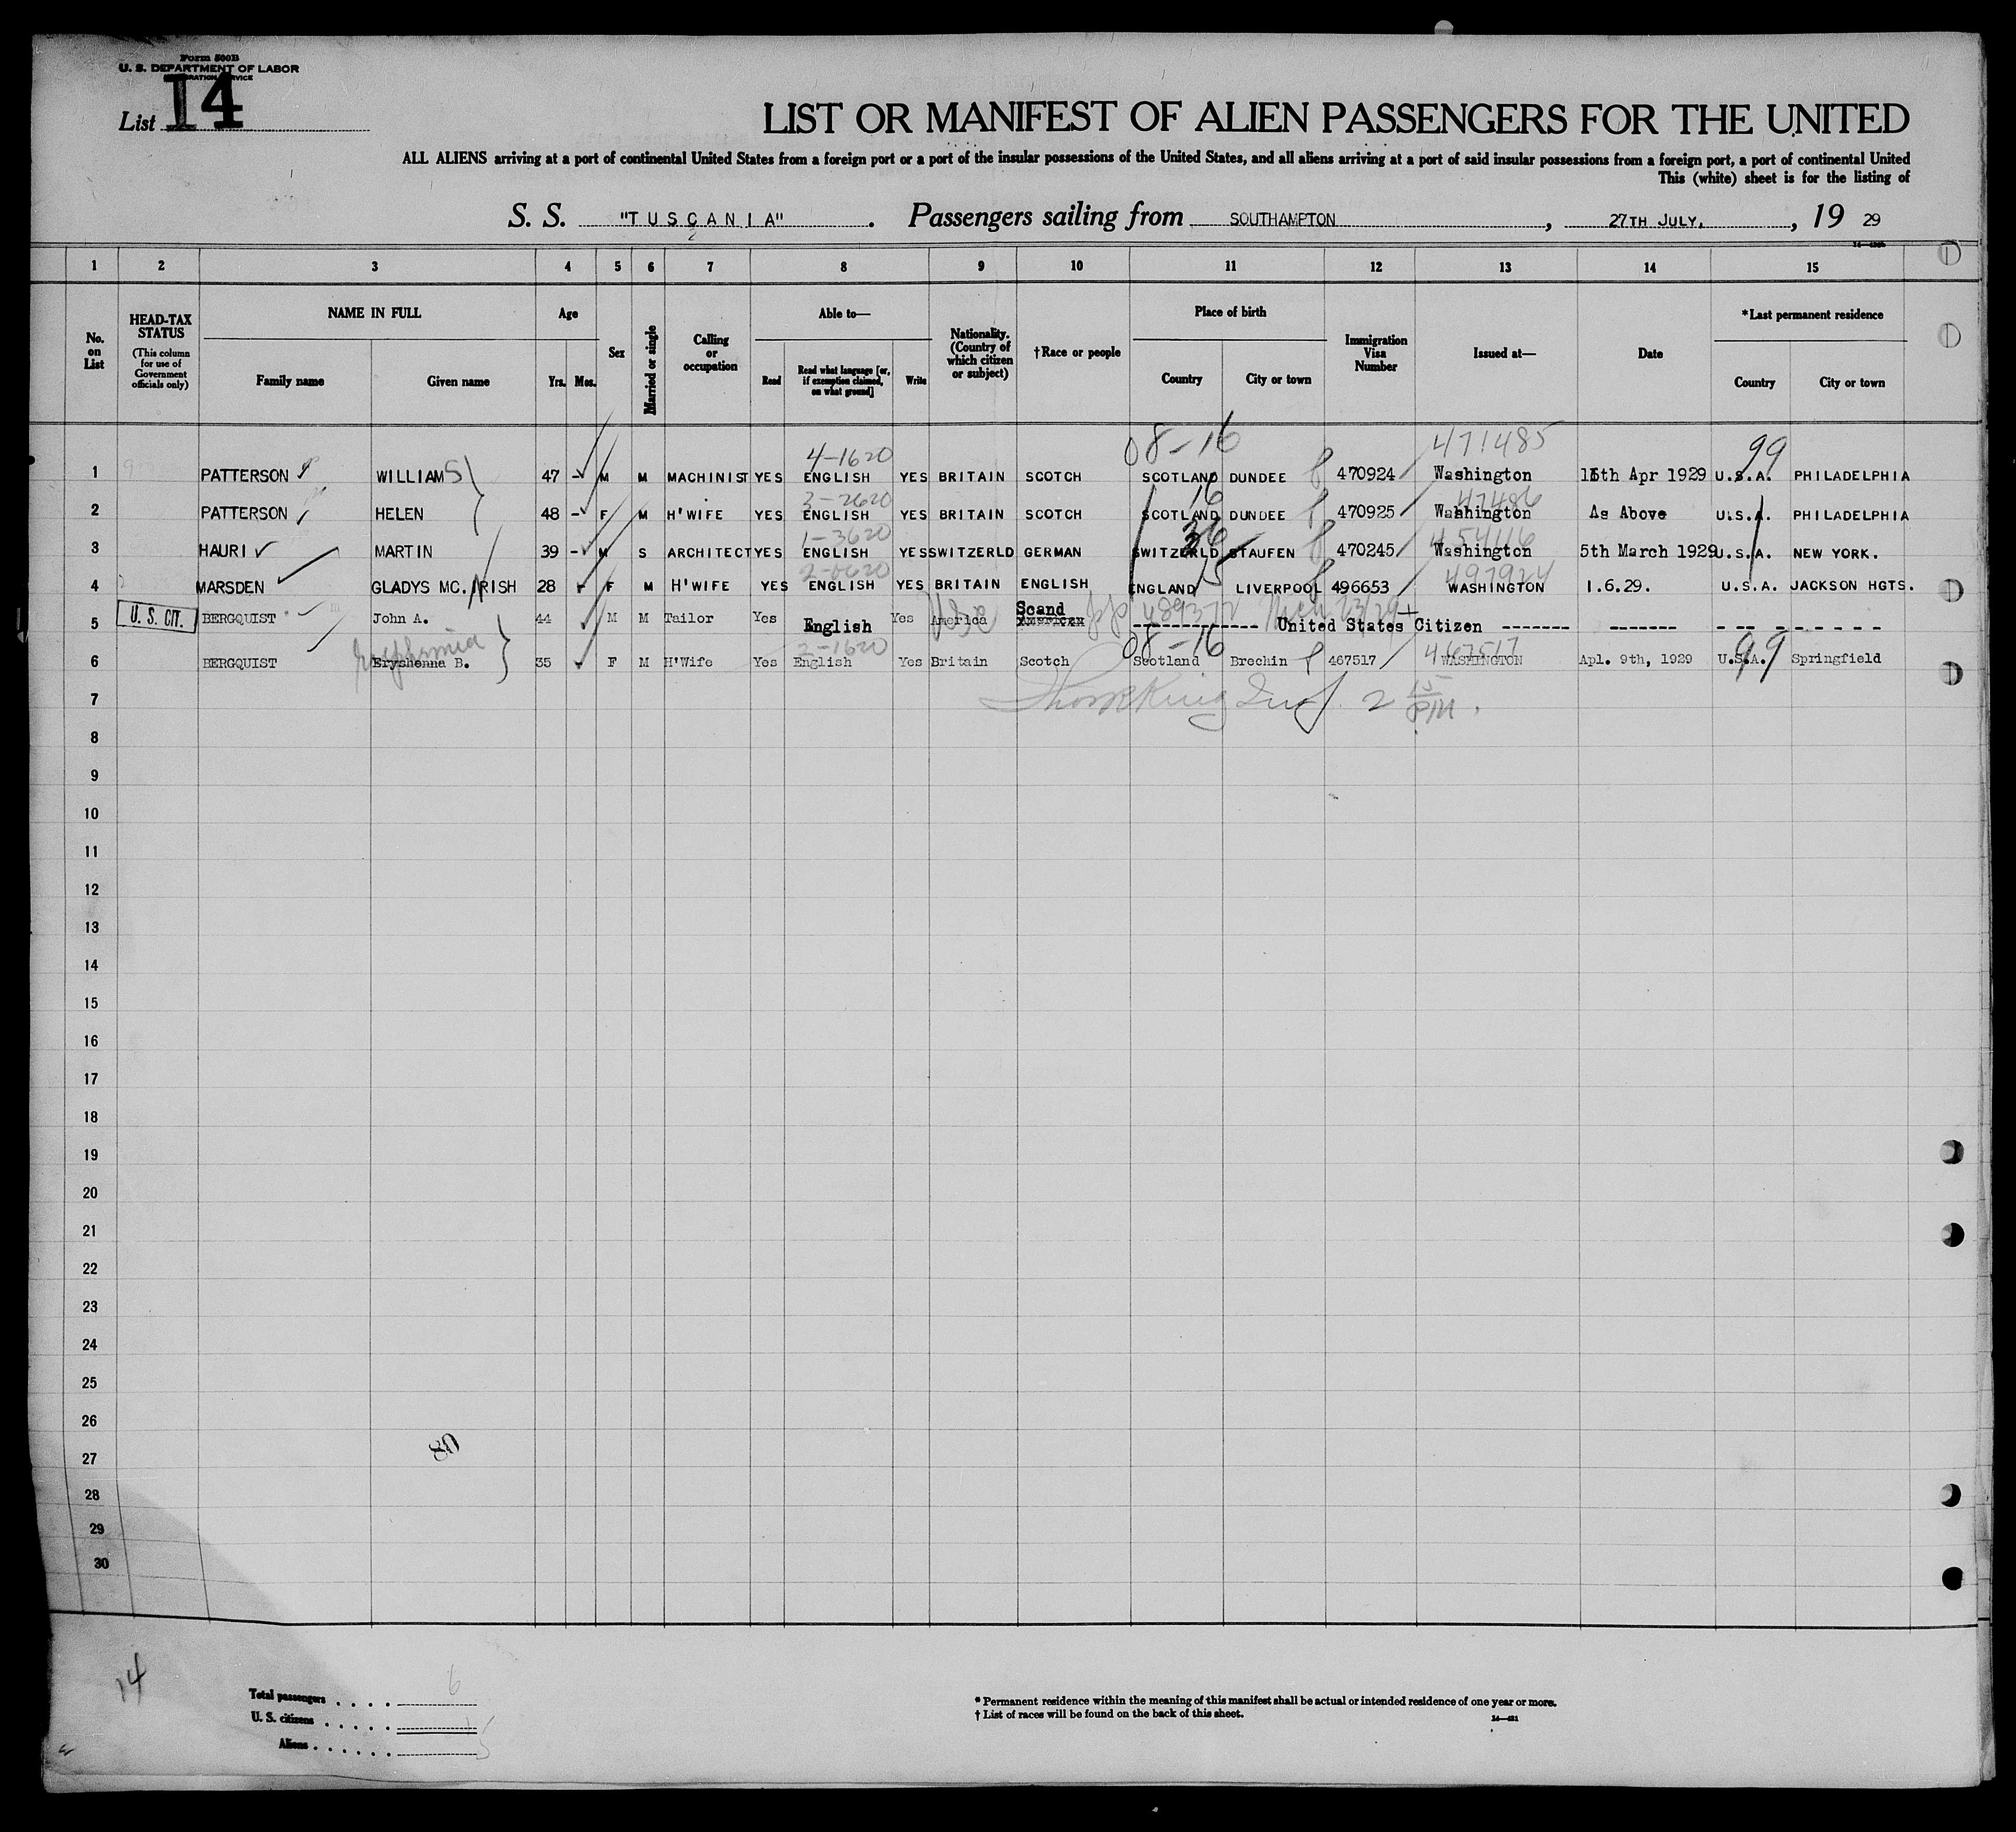 Form 500B
U. S. DEPARTMENT OF LABOR
IMMIGRATION SERVICE
List 14
LIST OR MANIFEST OF ALIEN PASSENGERS FOR THE UNITED
ALL ALIENS arriving at a port of continental United States from a foreign port or a port of the insular possessions of the United States, and all aliens arriving at a port of said insular possessions from a foreign port, a port of continental United
This (white) sheet is for the listing of
S. S. "TUSCANIA" . Passengers sailing from SOUTHAMPTON , 27TH JULY, , 19 29
1 2 3 4 5 6 7 8 9 10 11 12 13 14 15
No. on List
HEAD-TAX STATUS
(This column for use of Government officials only)
NAME IN FULL
Family name Given name
Age
Yrs. Mos.
Sex
Married or single
Calling or occupation
Able to—
Read Read what language [or, if exemption claimed, on what ground] Write
Nationality. (Country of which citizen or subject)
†Race or people
Place of birth
Country City or town
Immigration Visa Number
Issued at—
Date
*Last permanent residence
Country City or town
08-16 471485
4-1620 99
1 PATTERSON WILLIAM S 47 - M M MACHINIST YES ENGLISH YES BRITAIN SCOTCH SCOTLAND DUNDEE 470924 Washington 15th Apr 1929 U.S.A. PHILADELPHIA
3-2620 16
2 PATTERSON HELEN 48 - F M H'WIFE YES ENGLISH YES BRITAIN SCOTCH SCOTLAND DUNDEE 470925 Washington As Above U.S.A. PHILADELPHIA
1-3620 454116
3 HAURI MARTIN 39 - M S ARCHITECT YES ENGLISH YES SWITZERLD GERMAN SWITZERLD STAUFEN 470245 Washington 5th March 1929 U.S.A. NEW YORK.
15 497924
4 MARSDEN GLADYS MC. IRISH 28 F M H'WIFE YES ENGLISH YES BRITAIN ENGLISH ENGLAND LIVERPOOL 496653 WASHINGTON 1.6.29. U.S.A. JACKSON HGTS.
U. S. CIT.
Scand
5 BERGQUIST John A. 44 M M Tailor Yes English Yes America American ------------ United States Citizen ------- ------- -- -- - - - - - -
Euphemia 2-1620 08-16 467517 99
6 BERGQUIST Eryshenna B. 35 F M H'Wife Yes English Yes Britain Scotch Scotland Brechin 467517 WASHINGTON Apl. 9th, 1929 U.S.A. Springfield
7 2 15 PM.
8
9
10
11
12
13
14
15
16
17
18
19
20
21
22
23
24
25
26
80
27
28
29
30
14
Total passengers . . . . 6
U. S. citizens . . . . .
Aliens . . . . . . 5
* Permanent residence within the meaning of this manifest shall be actual or intended residence of one year or more.
† List of races will be found on the back of this sheet.